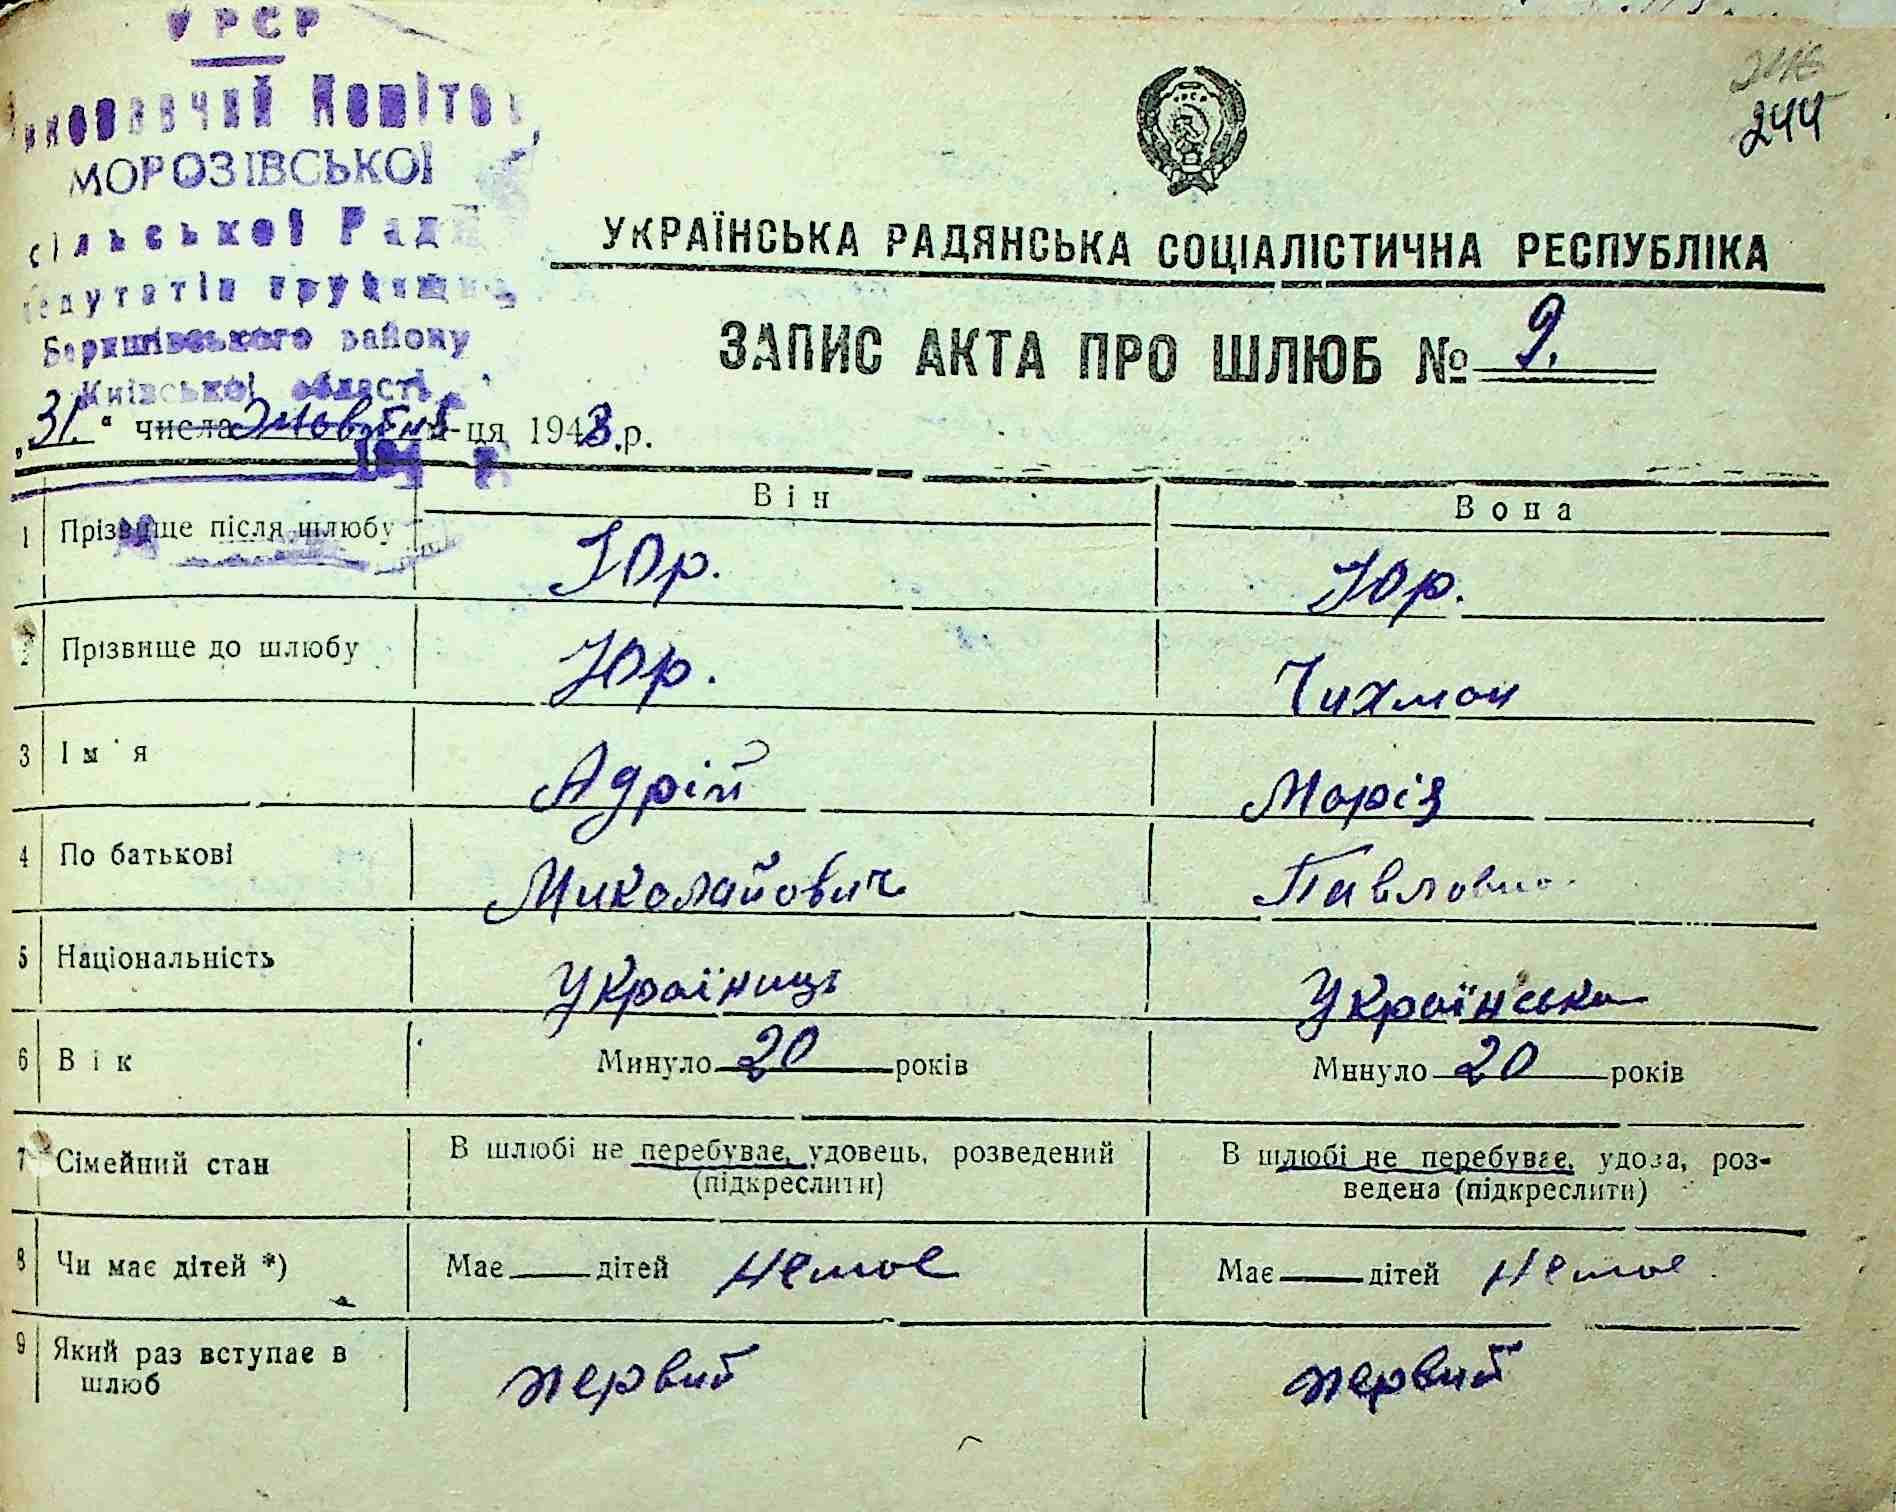 УРСР
Виконавчий Комітет
МОРОЗІВСЬКОЇ
сільської Ради
депутатів трудящих
Баришівського району
Київської області
244
УКРАЇНСЬКА РАДЯНСЬКА СОЦІАЛІСТИЧНА РЕСПУБЛІКА
ЗАПИС АКТА ПРО ШЛЮБ № 9.
„31.“ числа Жовтня м-ця 1943.р.
Він Вона
1 Прізвище після шлюбу Юр. Юр.
2 Прізвище до шлюбу Юр. Чихман
3 Ім'я Адрій Марія
4 По батькові Миколайович Павловна
5 Національність Українець Українська
6 Вік Минуло 20 років Минуло 20 років
7 Сімейний стан В шлюбі не перебуває, удовець, розведений В шлюбі не перебуває, удова, роз-
(підкреслити) ведена (підкреслити)
8 Чи має дітей *) Має дітей немає Має дітей немає
9 Який раз вступає в первий первий
шлюб